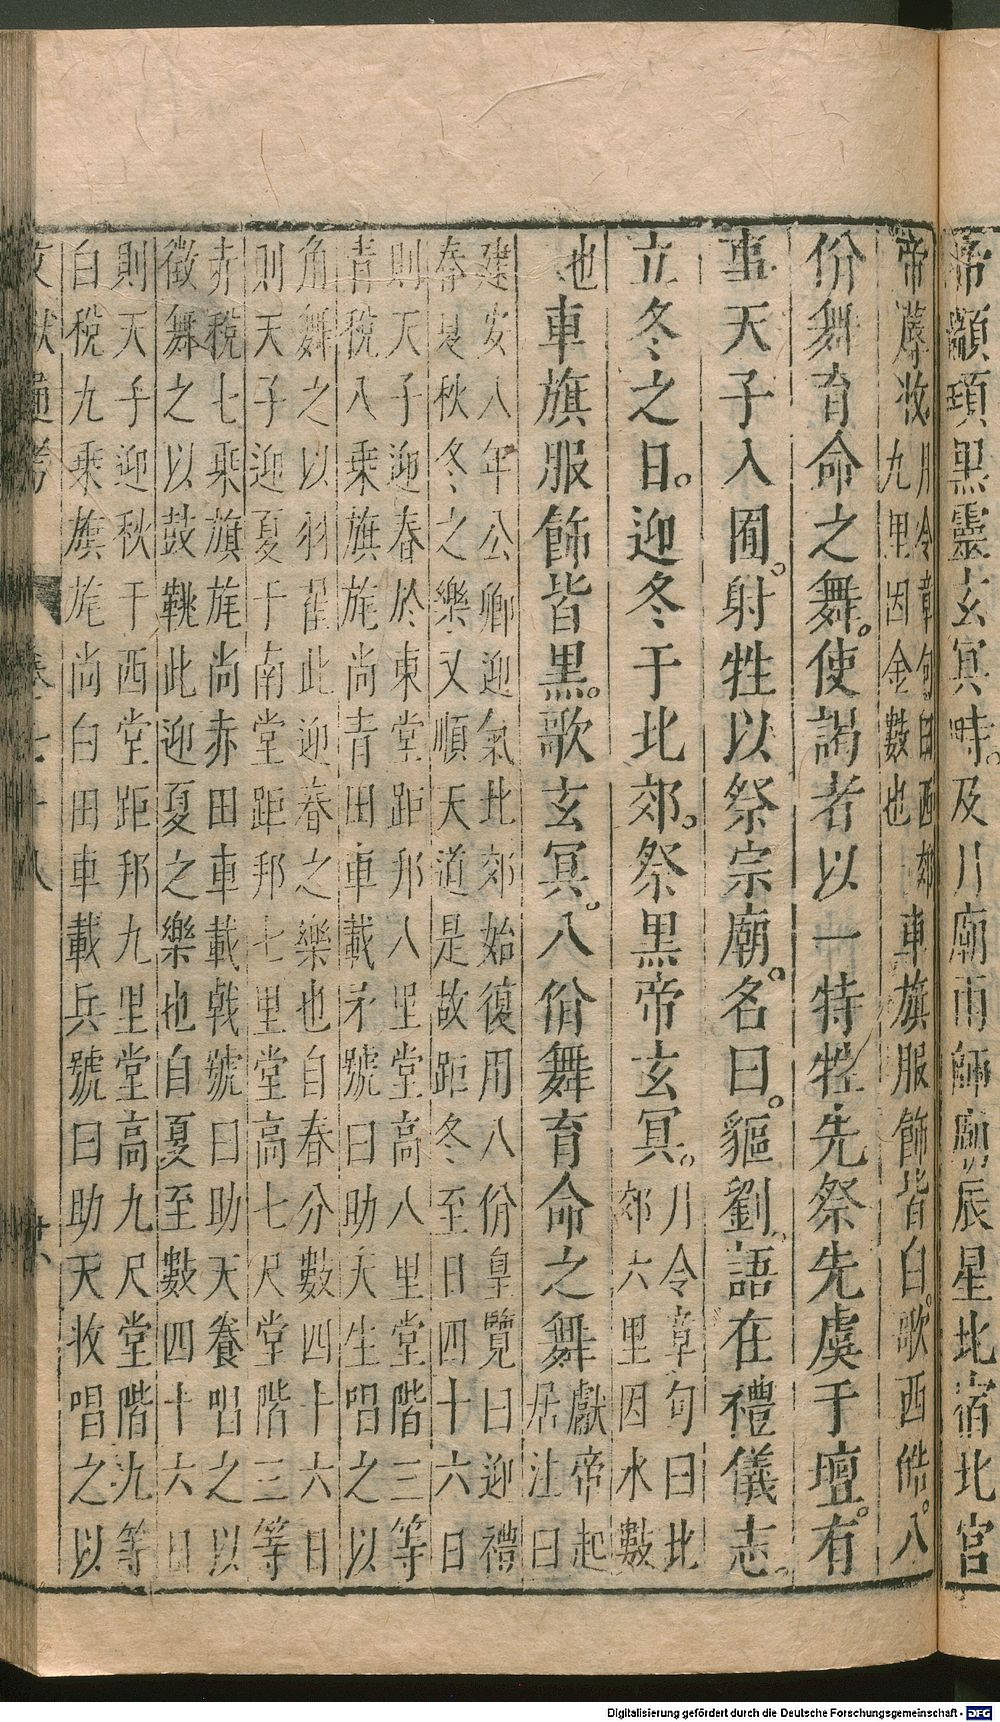 帝顓頊黑靈玄冥時。及月廟雨師廟辰星北宿北宮
帝蓐收月令章句曰西郊九里因金數也車旗服飾皆白。歌西皓。八
佾舞育命之舞。使謁者以一特牲先祭先虞于壇。有
事天子入囿。射牲以祭宗廟。名曰。貙劉。語在禮儀志。
立冬之日。迎冬于北郊。祭黑帝玄冥。月令章句曰北郊六里因水數
也車旗服飾皆黑。歌玄冥。八佾舞育命之舞獻帝起居注曰
建安八年公卿迎氣北郊始復用八佾皇覽曰迎禮
春夏秋冬之樂又順天道是故距冬至日四十六日
則天子迎春於東堂距邦八里堂高八里堂階三等
青稅八乘旗旄尚青田車載矛號曰助天生唱之以
角舞之以羽翟此迎春之樂也自春分數四十六日
則天子迎夏于南堂距邦七里堂高七尺堂階三等
赤稅七乘旗旄尚赤田車載戟號曰助天養唱之以
徵舞之以鼓鞉此迎夏之樂也自夏至數四十六日
則天子迎秋于西堂距邦九里堂高九尺堂階九等
白稅九乘旗旄尚白田車載兵號曰助天收唱之以
文獻通考 卷七十八 廿八
Digitalisierung gefördert durch die Deutsche Forschungsgemeinschaft - DFG